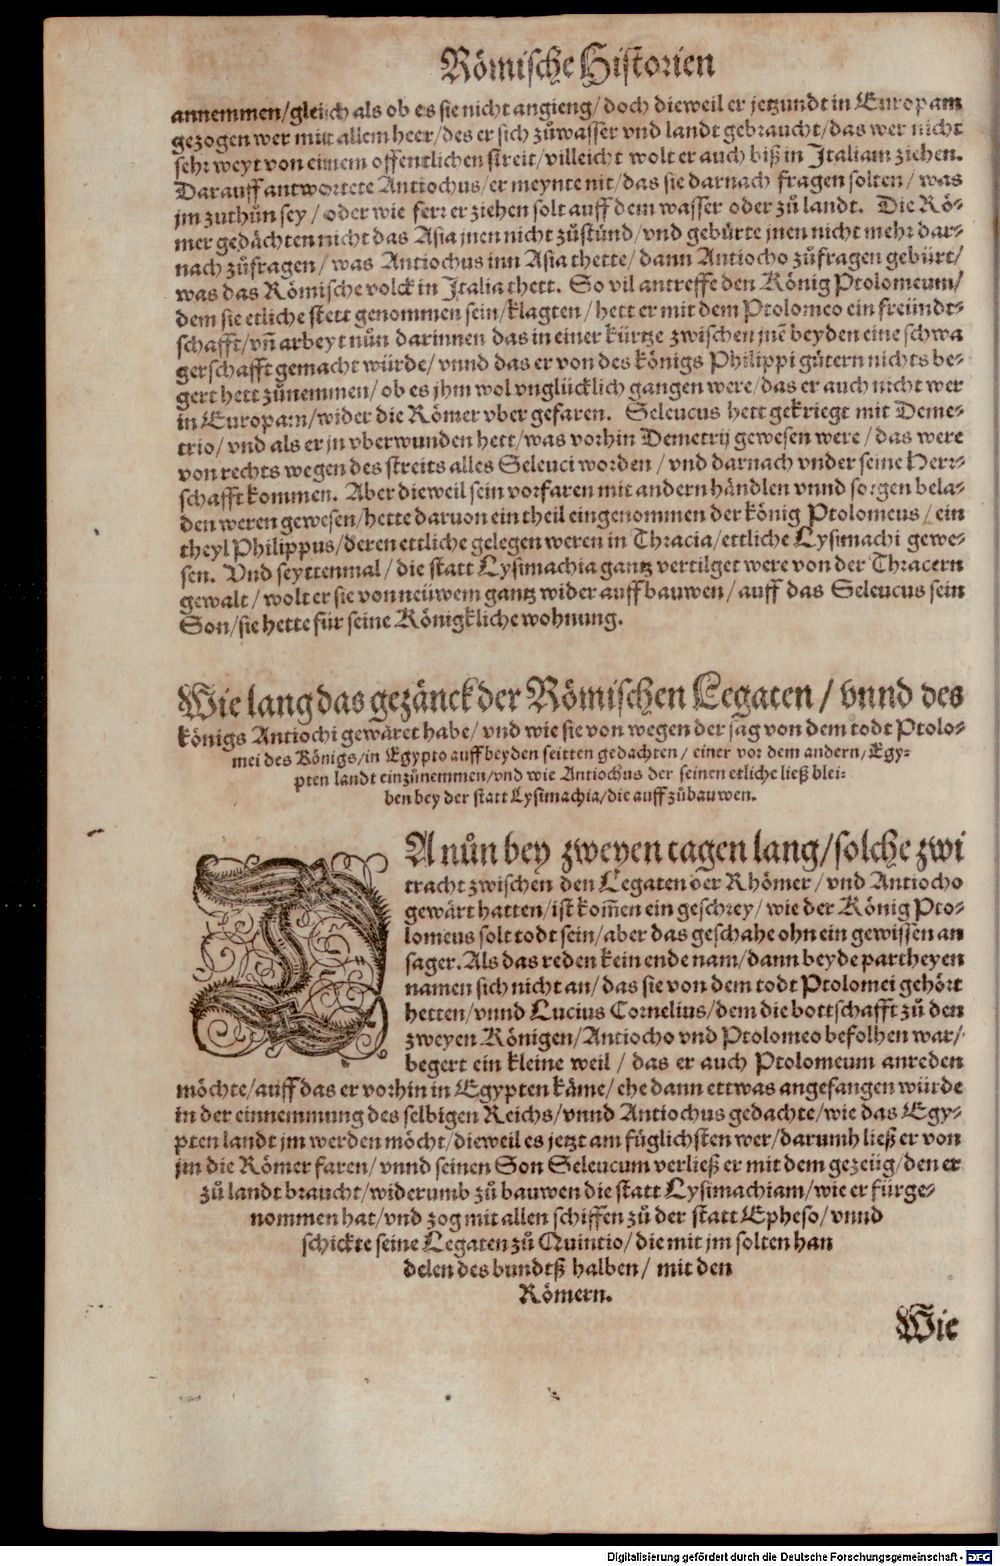 Römische Historien
annemmen/gleich als ob es sie nicht angieng/doch dieweil er jetzundt in Europam
gezogen wer mitt allem heer/des er sich zůwasser vnd landt gebraucht/das wer nicht
sehr weyt von einem offentlichen streit/villeicht wolt er auch biß in Italiam ziehen.
Darauff antwortete Antiochus/er meynte nit/das sie darnach fragen solten/was
jm zuthůn sey/oder wie ferr er ziehen solt auff dem wasser oder zů landt. Die Rö-
mer gedächten nicht das Asia jnen nicht zůstünd/vnd gebürte jnen nicht mehr dar-
nach zůfragen/was Antiochus inn Asia thette/dann Antiocho zůfragen gebürt/
was das Römische volck in Italia thett. So vil antreffe den König Ptolomeum/
dem sie etliche stett genommen sein/klagten/hett er mit dem Ptolomeo ein freündt-
schafft/vñ arbeyt nůn darinnen das in einer kürtze zwischen jnẽ beyden eine schwa
gerschafft gemacht würde/vnnd das er von des königs Philippi gütern nichts be-
gert hett zůnemmen/ob es jhm wol vnglücklich gangen were/das er auch nicht wer
in Europam/wider die Römer vber gefaren. Seleucus hett gekriegt mit Deme-
trio/vnd als er jn vberwunden hett/was vorhin Demetrij gewesen were/das were
von rechts wegen des streits alles Seleuci worden/vnd darnach vnder seine Herr-
schafft kommen. Aber dieweil sein vorfaren mit andern händlen vnnd sorgen bela-
den weren gewesen/hette daruon ein theil eingenommen der könig Ptolomeus/ein
theyl Philippus/deren ettliche gelegen weren in Thracia/ettliche Lysimachi gewe-
sen. Vnd seyttenmal/die statt Lysimachia gantz vertilget were von der Thracern
gewalt/wolt er sie von neüwem gantz wider auffbauwen/auff das Seleucus sein
Son/sie hette für seine Königkliche wohnung.
Wie lang das gezänck der Römischen Legaten/vnnd des
königs Antiochi gewäret habe/vnd wie sie von wegen der sag von dem todt Ptolo-
mei des Königs/in Egypto auff beyden seitten gedachten/einer vor dem andern/Egy-
pten landt einzůnemmen/vnd wie Antiochus der seinen etliche ließ blei-
ben bey der statt Lysimachia/die auffzůbauwen.
DA nůn bey zweyen tagen lang/solche zwi
tracht zwischen den Legaten der Rhömer/vnd Antiocho
gewärt hatten/ist kom̃en ein geschrey/wie der König Pto-
lomeus solt todt sein/aber das geschahe ohn ein gewissen an
sager. Als das reden kein ende nam/dann beyde partheyen
namen sich nicht an/das sie von dem todt Ptolomei gehört
hetten/vnnd Lucius Cornelius/dem die bottschafft zů den
zweyen Königen/Antiocho vnd Ptolomeo befolhen war/
begert ein kleine weil/das er auch Ptolomeum anreden
möchte/auff das er vorhin in Egypten käme/ehe dann ettwas angefangen würde
in der einnemmung des selbigen Reichs/vnnd Antiochus gedachte/wie das Egy-
pten landt jm werden möcht/dieweil es jetzt am füglichsten wer/darumb ließ er von
jm die Römer faren/vnnd seinen Son Seleucum verließ er mit dem gezeüg/den er
zů landt braucht/widerumb zů bauwen die statt Lysimachiam/wie er fürge-
nommen hat/vnd zog mit allen schiffen zů der statt Epheso/vnnd
schickte seine Legaten zů Quintio/die mit jm solten han
delen des bundtß halben/mit den
Römern.
Wie
Digitalisierung gefördert durch die Deutsche Forschungsgemeinschaft - DFG